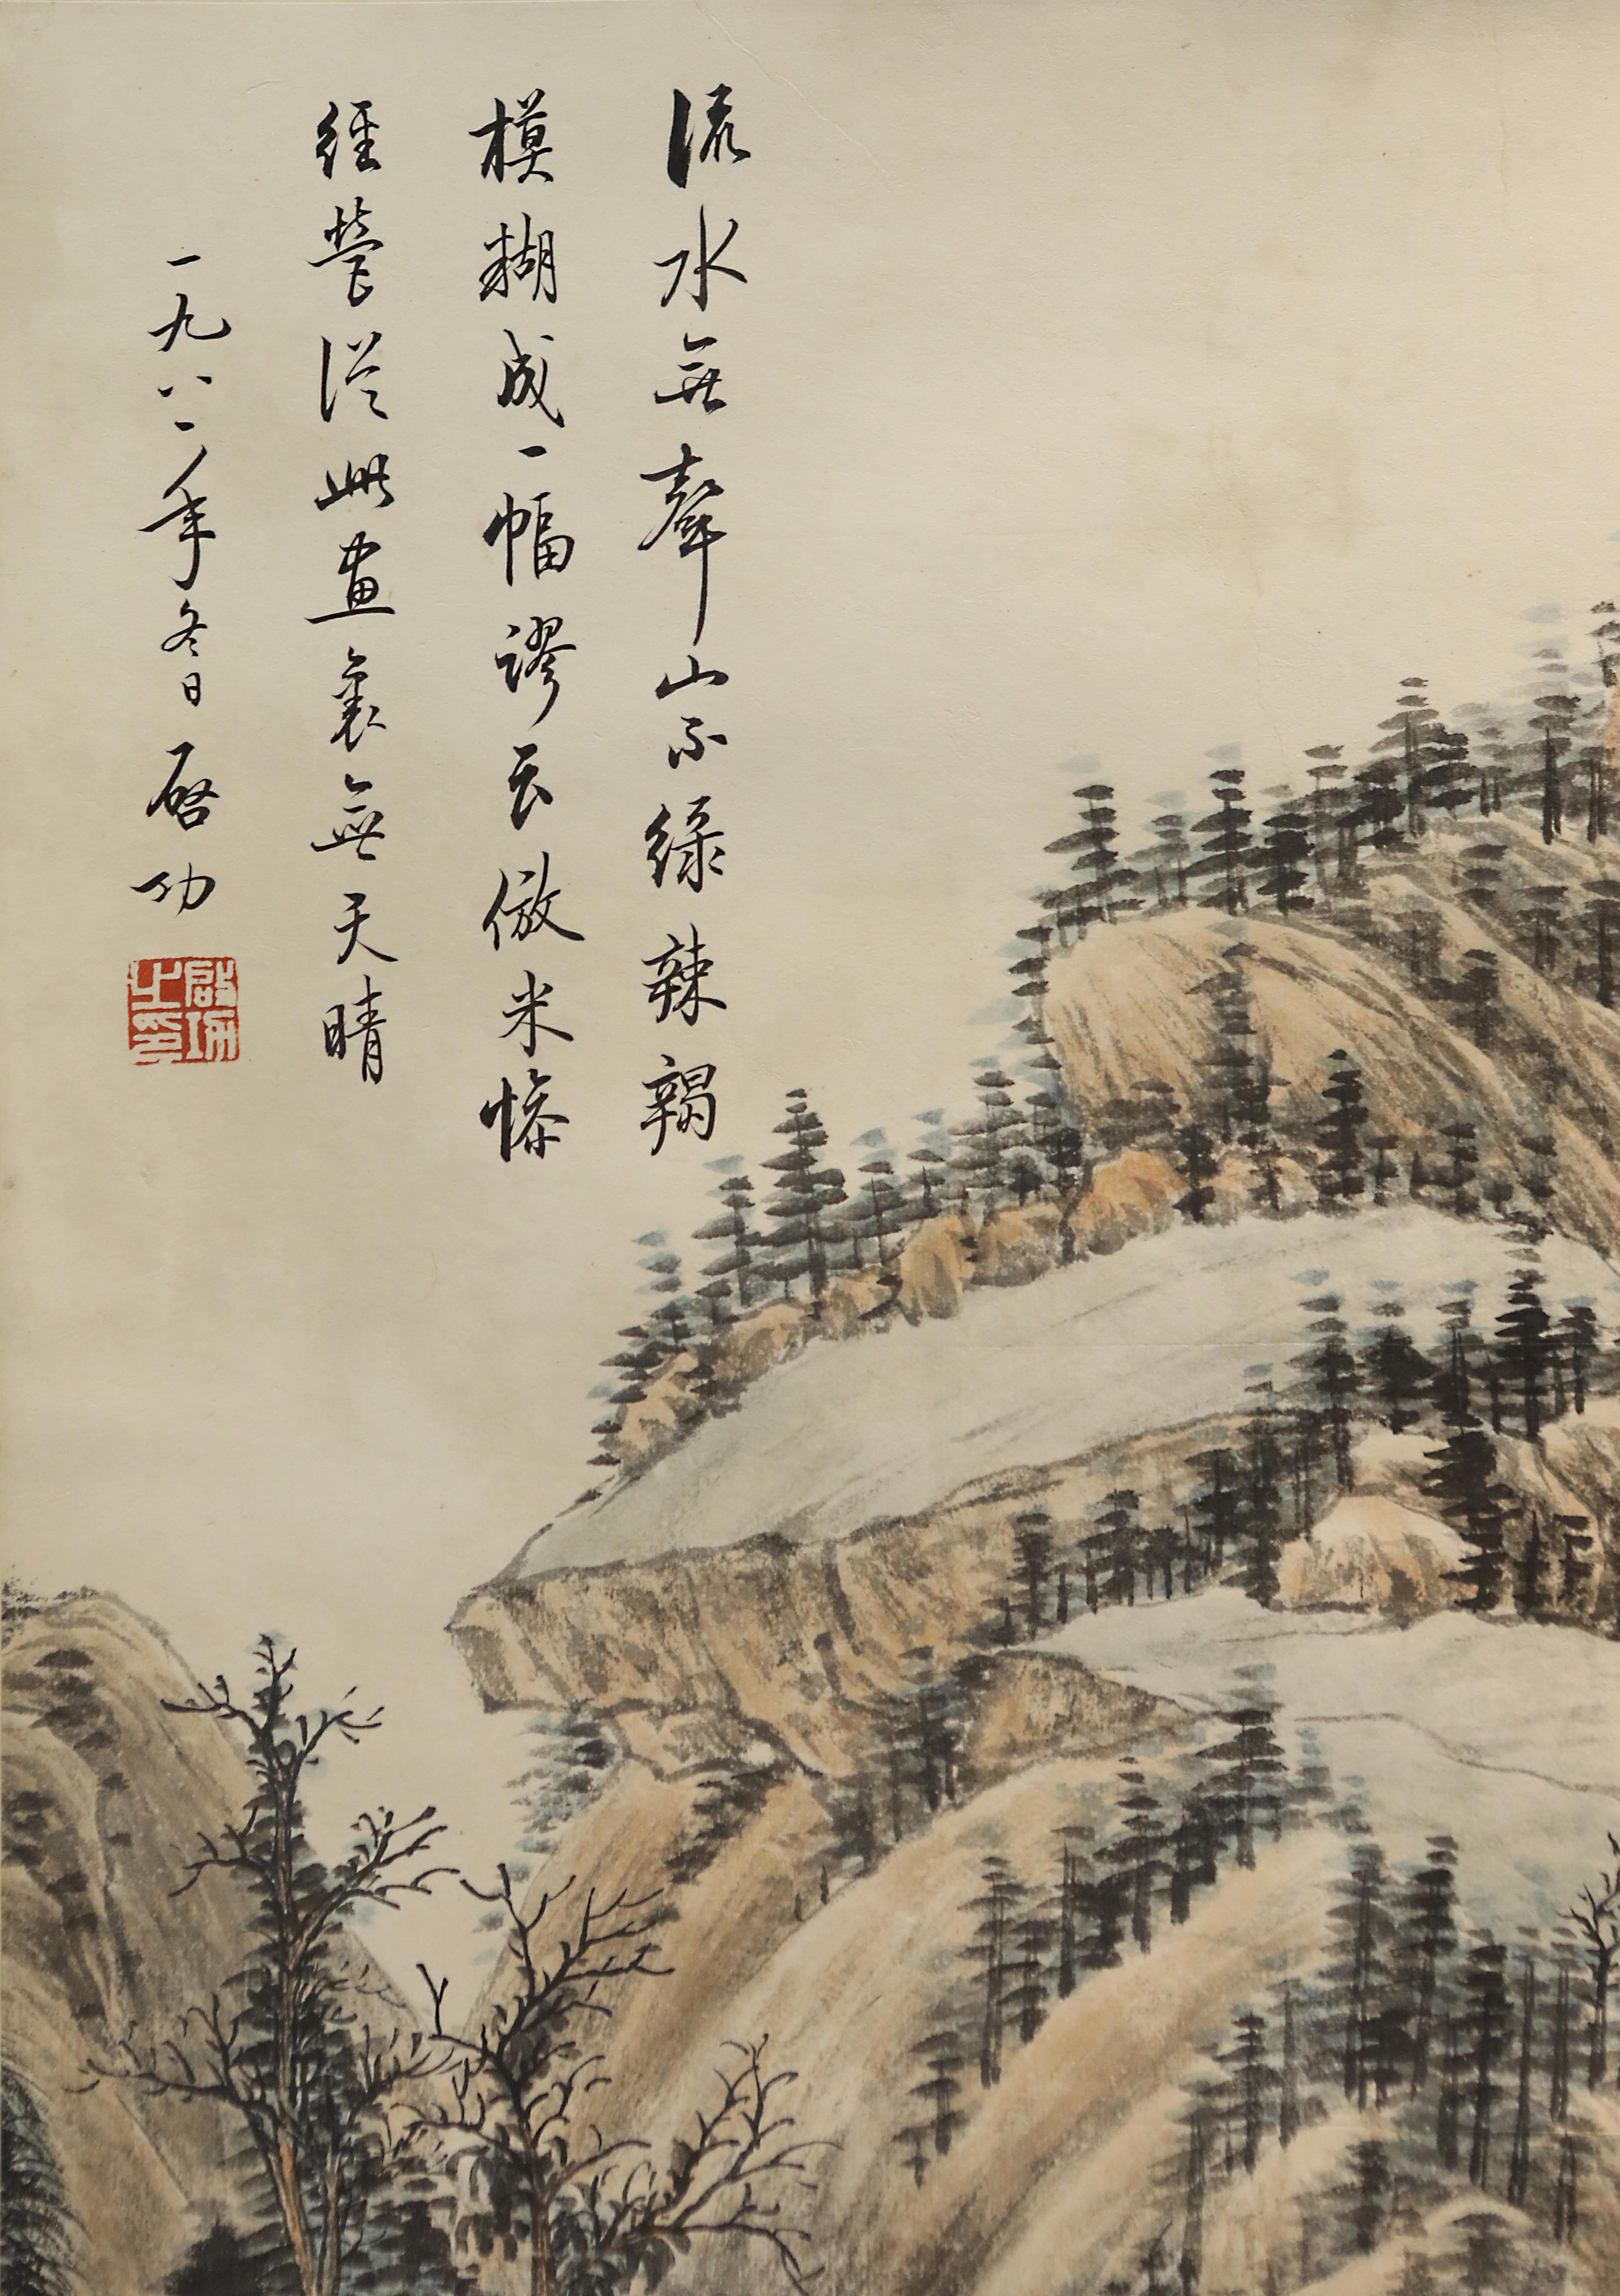 流水無聲山不緑辣
模糊成一幅謬云倣米慘
經營從此畫裏無天晴
一九八一年冬日启功
啟功之印